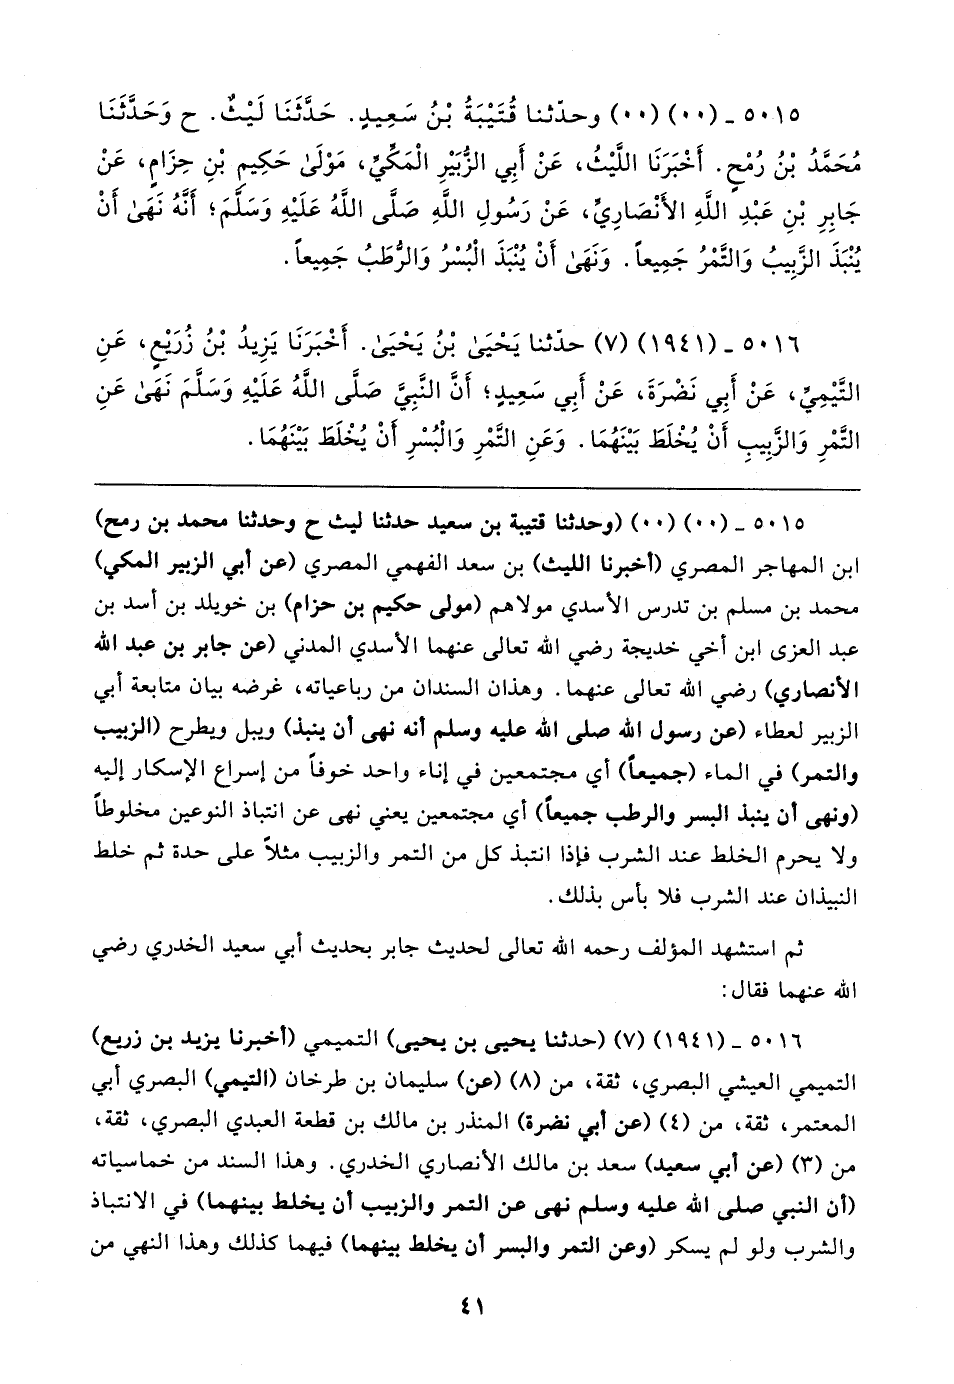 ٥٠١٥ ـ (٠٠) (٠٠) وحدّثنا قُتَيْبَةُ بْنُ سَعِيدٍ. حَدَّثَنَا لَيْثٌ. ح وَحَدَّثَنَا
مُحَمَّدُ بْنُ رُمْحٍ. أَخْبَرَنَا اللَّيْثُ، عَنْ أَبِي الزُّبَيْرِ الْمَكِّيِّ، مَوْلَىٰ حَكِيمِ بْنِ حِزَامٍ، عَنْ
جَابِرِ بْنِ عَبْدِ اللَّهِ الأَنْصَارِيِّ، عَنْ رَسُولِ اللَّهِ صَلَّى اللَّهُ عَلَيْهِ وَسَلَّمَ؛ أَنَّهُ نَهَىٰ أَنْ
يُنْبَذَ الزَّبِيبُ وَالتَّمْرُ جَمِيعاً. وَنَهَىٰ أَنْ يُنْبَذَ الْبُسْرُ وَالرُّطَبُ جَمِيعاً.
٥٠١٦ ـ (١٩٤١) (٧) حدّثنا يَحْيَىٰ بْنُ يَحْيَىٰ. أَخْبَرَنَا يَزِيدُ بْنُ زُرَيْعٍ، عَنِ
التَّيْمِيِّ، عَنْ أَبِي نَضْرَةَ، عَنْ أَبِي سَعِيدٍ؛ أَنَّ النَّبِيَّ صَلَّى اللَّهُ عَلَيْهِ وَسَلَّمَ نَهَىٰ عَنِ
التَّمْرِ وَالزَّبِيبِ أَنْ يُخْلَطَ بَيْنَهُمَا. وَعَنِ التَّمْرِ وَالْبُسْرِ أَنْ يُخْلَطَ بَيْنَهُمَا.
٥٠١٥ ـ (٠٠) (٠٠) (وحدثنا قتيبة بن سعيد حدثنا ليث ح وحدثنا محمد بن رمح)
ابن المهاجر المصري (أخبرنا الليث) بن سعد الفهمي المصري (عن أبي الزبير المكي)
محمد بن مسلم بن تدرس الأسدي مولاهم (مولى حكيم بن حزام) بن خويلد بن أسد بن
عبد العزى ابن أخي خديجة رضي الله تعالى عنهما الأسدي المدني (عن جابر بن عبد الله
الأنصاري) رضي الله تعالى عنهما. وهذان السندان من رباعياته، غرضه بيان متابعة أبي
الزبير لعطاء (عن رسول الله صلى الله عليه وسلم أنه نهى أن ينبذ) ويبل ويطرح (الزبيب
والتمر) في الماء (جميعاً) أي مجتمعين في إناء واحد خوفاً من إسراع الإسكار إليه
(ونهى أن ينبذ البسر والرطب جميعاً) أي مجتمعين يعني نهى عن انتباذ النوعين مخلوطاً
ولا يحرم الخلط عند الشرب فإذا انتبذ كل من التمر والزبيب مثلاً على حدة ثم خلط
النبيذان عند الشرب فلا بأس بذلك.
ثم استشهد المؤلف رحمه الله تعالى لحديث جابر بحديث أبي سعيد الخدري رضي
الله عنهما فقال:
٥٠١٦ ـ (١٩٤١) (٧) (حدثنا يحيى بن يحيى) التميمي (أخبرنا يزيد بن زريع)
التميمي العيشي البصري، ثقة، من (٨) (عن) سليمان بن طرخان (التيمي) البصري أبي
المعتمر، ثقة، من (٤) (عن أبي نضرة) المنذر بن مالك بن قطعة العبدي البصري، ثقة،
من (٣) (عن أبي سعيد) سعد بن مالك الأنصاري الخدري. وهذا السند من خماسياته
(أن النبي صلى الله عليه وسلم نهى عن التمر والزبيب أن يخلط بينهما) في الانتباذ
والشرب ولو لم يسكر (وعن التمر والبسر أن يخلط بينهما) فيهما كذلك وهذا النهي من
٤١